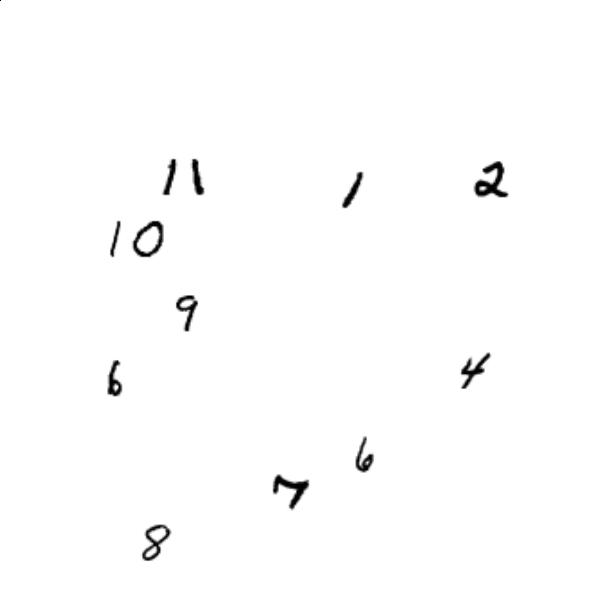 11 1 2
10
9
6 4
6
7
8